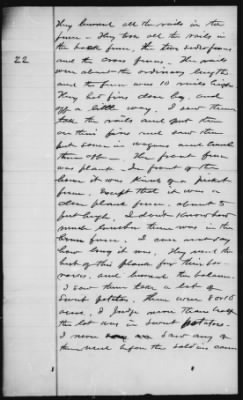 They burned all the rails in the
fence - They took all the rails in
22
the back fence, the two side fences
and the cross fence. The rails
were about the ordinary length
and the fence was 10 rails high
They got five down by, and
off a little way. I saw them
take the rails and put them
on their fires and saw them
put some in wagons and haul
them off - The front fence
was plank - In front of the
house it was kind of a picket
fence. Except that it was a
clear plank fence, about
feet high. I don't know how
much lumber there was in the
fence. I can not say
how long it was. They used the
best of this plank for their
and burned the balance.
I saw them take a lot of
Sweet potatoes. There were 8 or 10
acres, I judge more than half
the lot was in Sweet potatoes.
I never saw any of
them here before the soldiers came